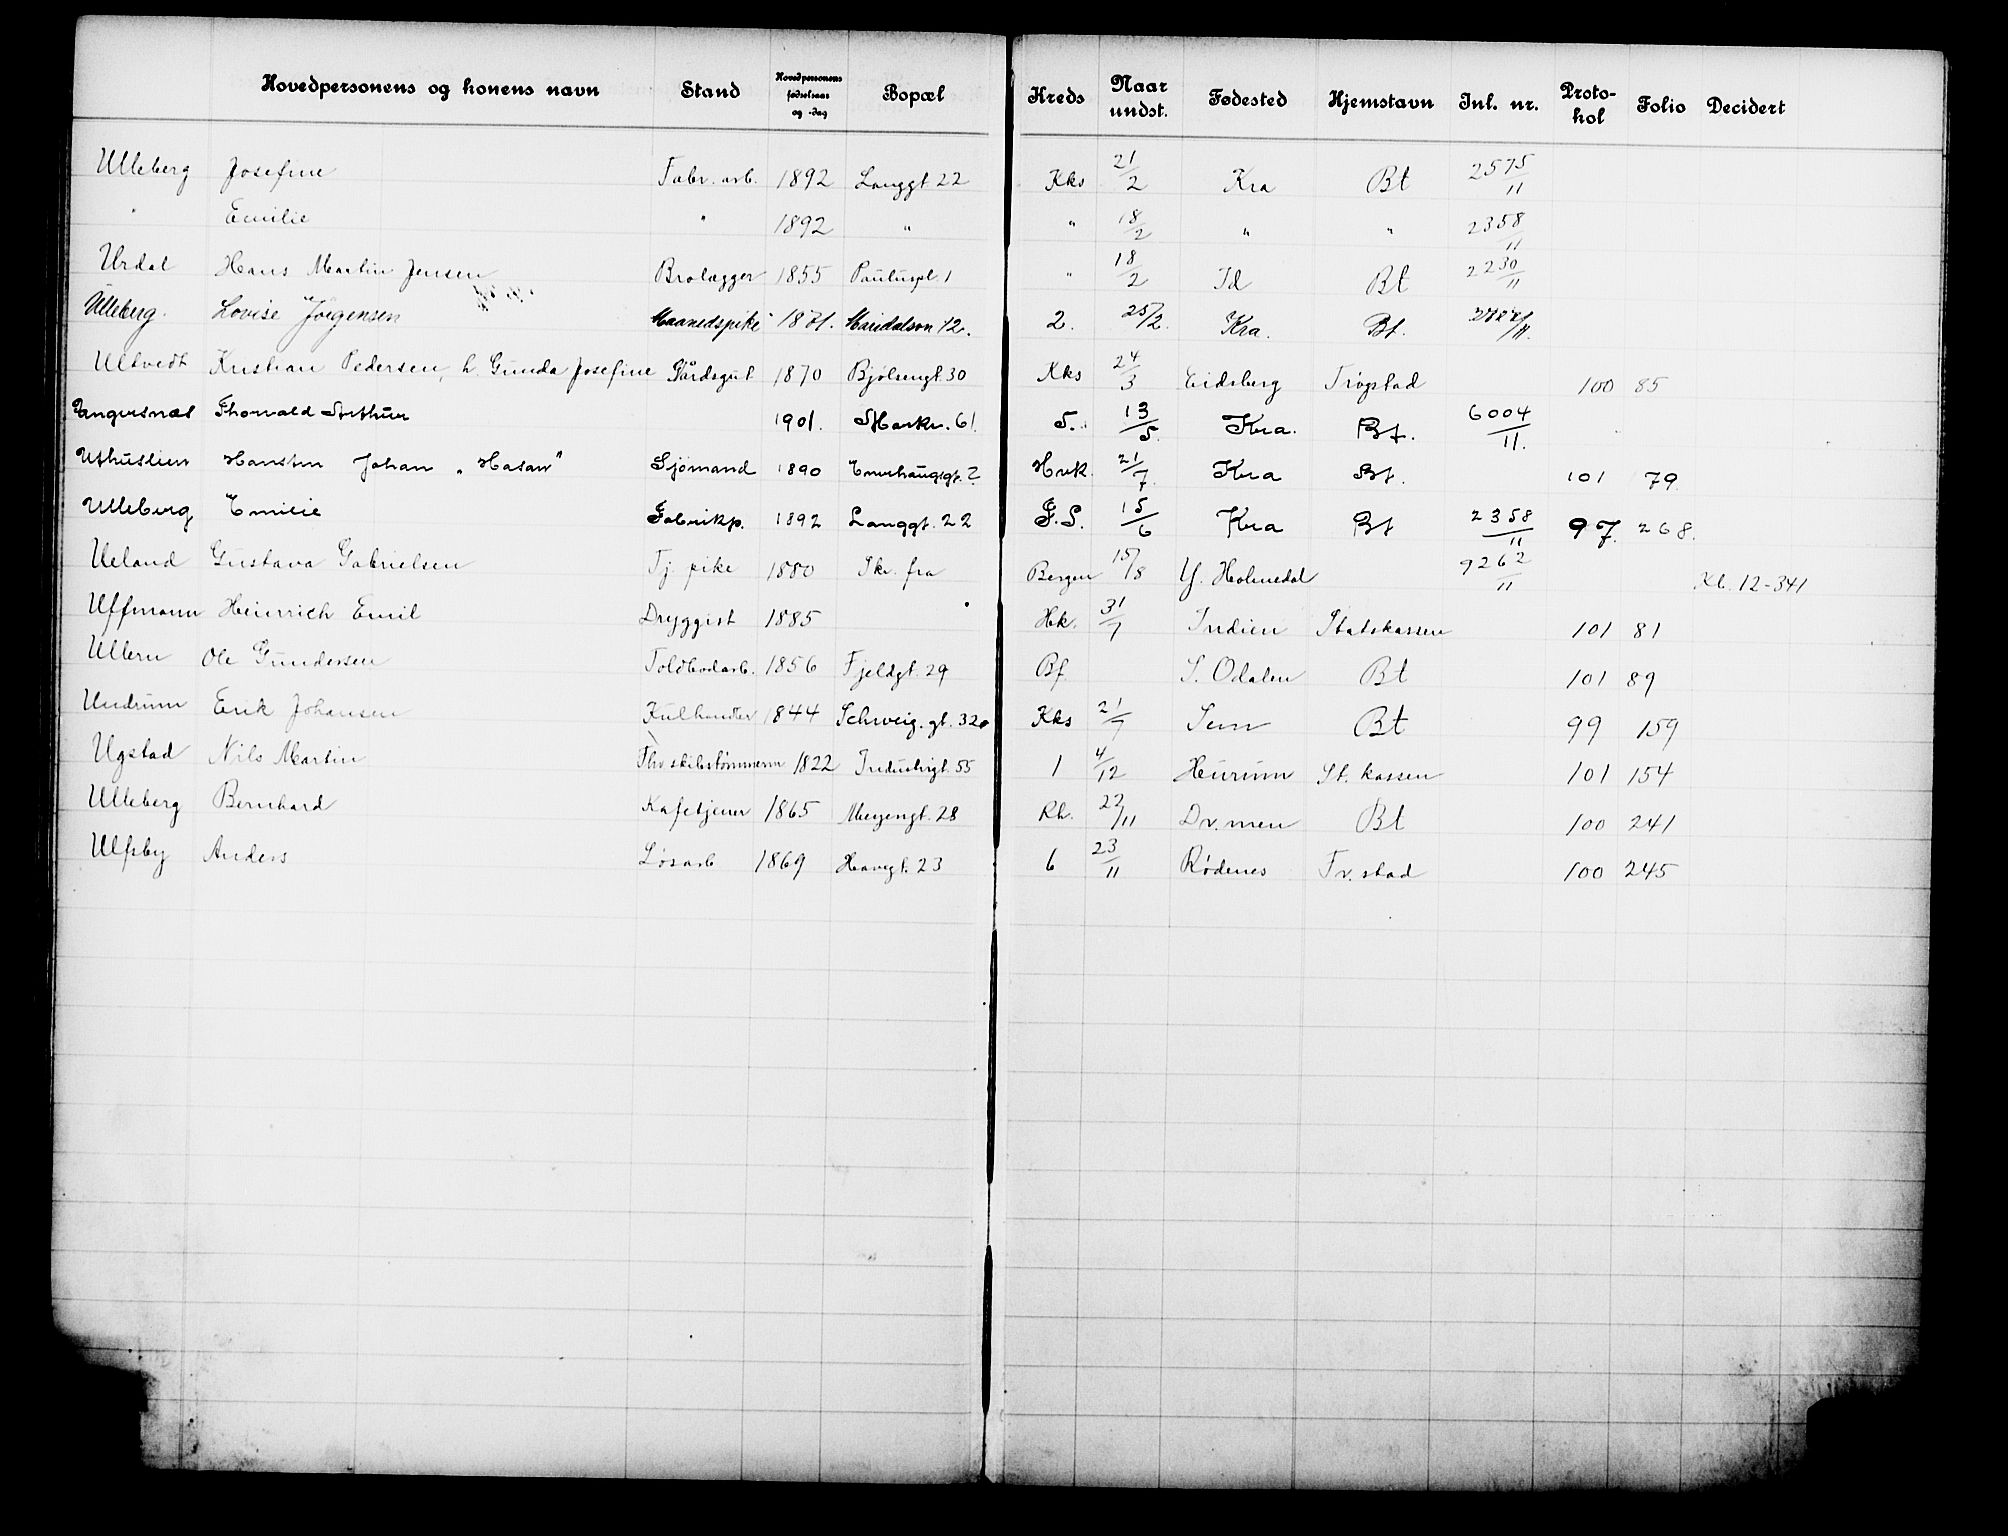 Hovedpersonens og konens navn Stand Hovedpersonens fødselsaar og -dag Bopæl Kreds Naar undst. Fødested Hjemstavn Inl. nr. Proto-kol Folio Decidert
Ulleberg Josefine Fabr. arb. 1892 Langgt 22 Kks 21/2 Kra Bt 2575/11
" Emilie " 1892 " " 18/2 " " 2358/11
Urdal Hans Martin Jensen Brolægger 1855 Pauluspl 1 " 18/2 Id Bt 2230/11
Ulleberg. Lovise Jørgensen Maanedspike 1871. Maridalsvn 12. 2. 25/2. Kra. Bt.
Ultvedt Kristian Pedersen, h. Gunda Josefine Gårdsgut 1870 Bjølsengt. 30 Kks 24/3 Eidsberg Trøgstad 100 85
Ungersnæs Thorvald Arthur 1901. Markv. 61. 5. 13/5. Kra. Bt. 6004/11.
Uthuslien Karsten Johan „Hasan" Sjømand 1890 Enerhauggt. 2 Hvk. 21/7. Kra Bt. 101 79.
Ulleberg Emilie Fabrikp. 1892 Langgt. 22 F.S. 15/6 Kra Bt 2358/11 97. 268.
Ueland Gustava Gabrielsen Tj. pike 1880 Skr. fra Bergen 15/8 Y. Holmedal 9262/11 Kl. 12-341
Uffmann Heinrich Emil Dryggist 1885 Hk. 31/7 Indien Statskassen 101 81
Ullern Ole Gundersen Toldbodarb. 1856 Fjeldgt. 29 Bf S. Odalen Bt 101 89
Undrum Erik Johansen Kulhandler 1844 Schweig. gt. 32a Kks 21/9 Sem Bt 99 159
Ugstad Nils Martin Fhv skibstømmerm 1822 Industrigt. 55 1 4/12 Hurum St. kassen 101 154
Ulleberg Bernhard Kafetjener 1865 Meyergt. 28 Rh. 22/11 Dr.men Bt 100 241
Ulfsby Anders Løsarb 1869 Havregt. 23 6 23/11 Rødenes Fr. stad 100 245